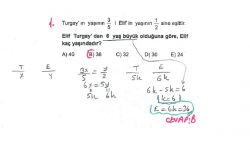 1. Turgay'ın yaşının 3/5 i Elif'in yaşının 1/2 sine eşittir.
Elif Turgay'dan 6 yaş büyük olduğuna göre, Elif
kaç yaşındadır?
A) 40 B) 36 C) 32 D) 30 E) 24
T E 3x/5 = y/2 T E
x y 6x = 5y 5k 6k
5k 6k 6k - 5k = 6
k = 6
E = 6k = 36
CEVAP: B